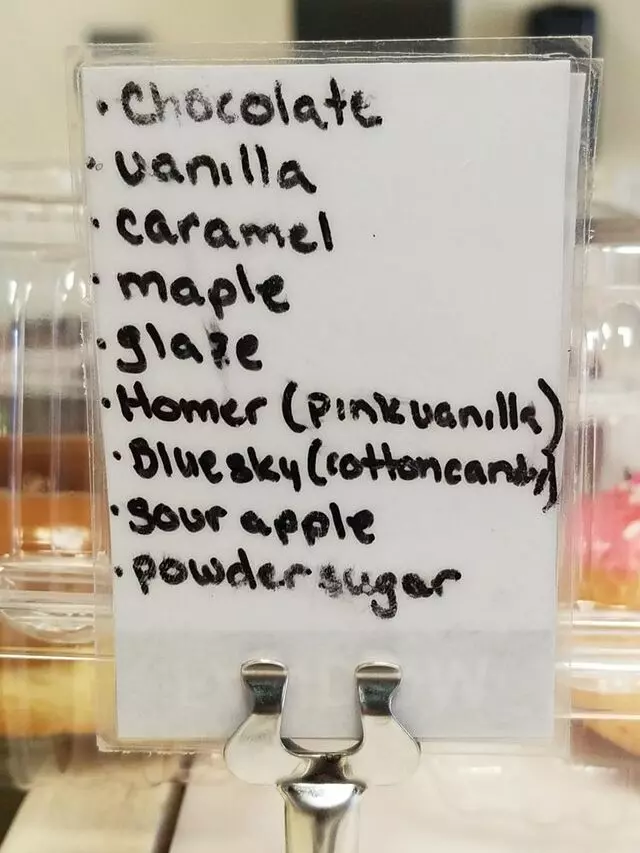 • Chocolate
• vanilla
• caramel
• maple
• glaze
• Homer (pink vanilla)
• Blue sky (cotton candy)
• sour apple
• powder sugar